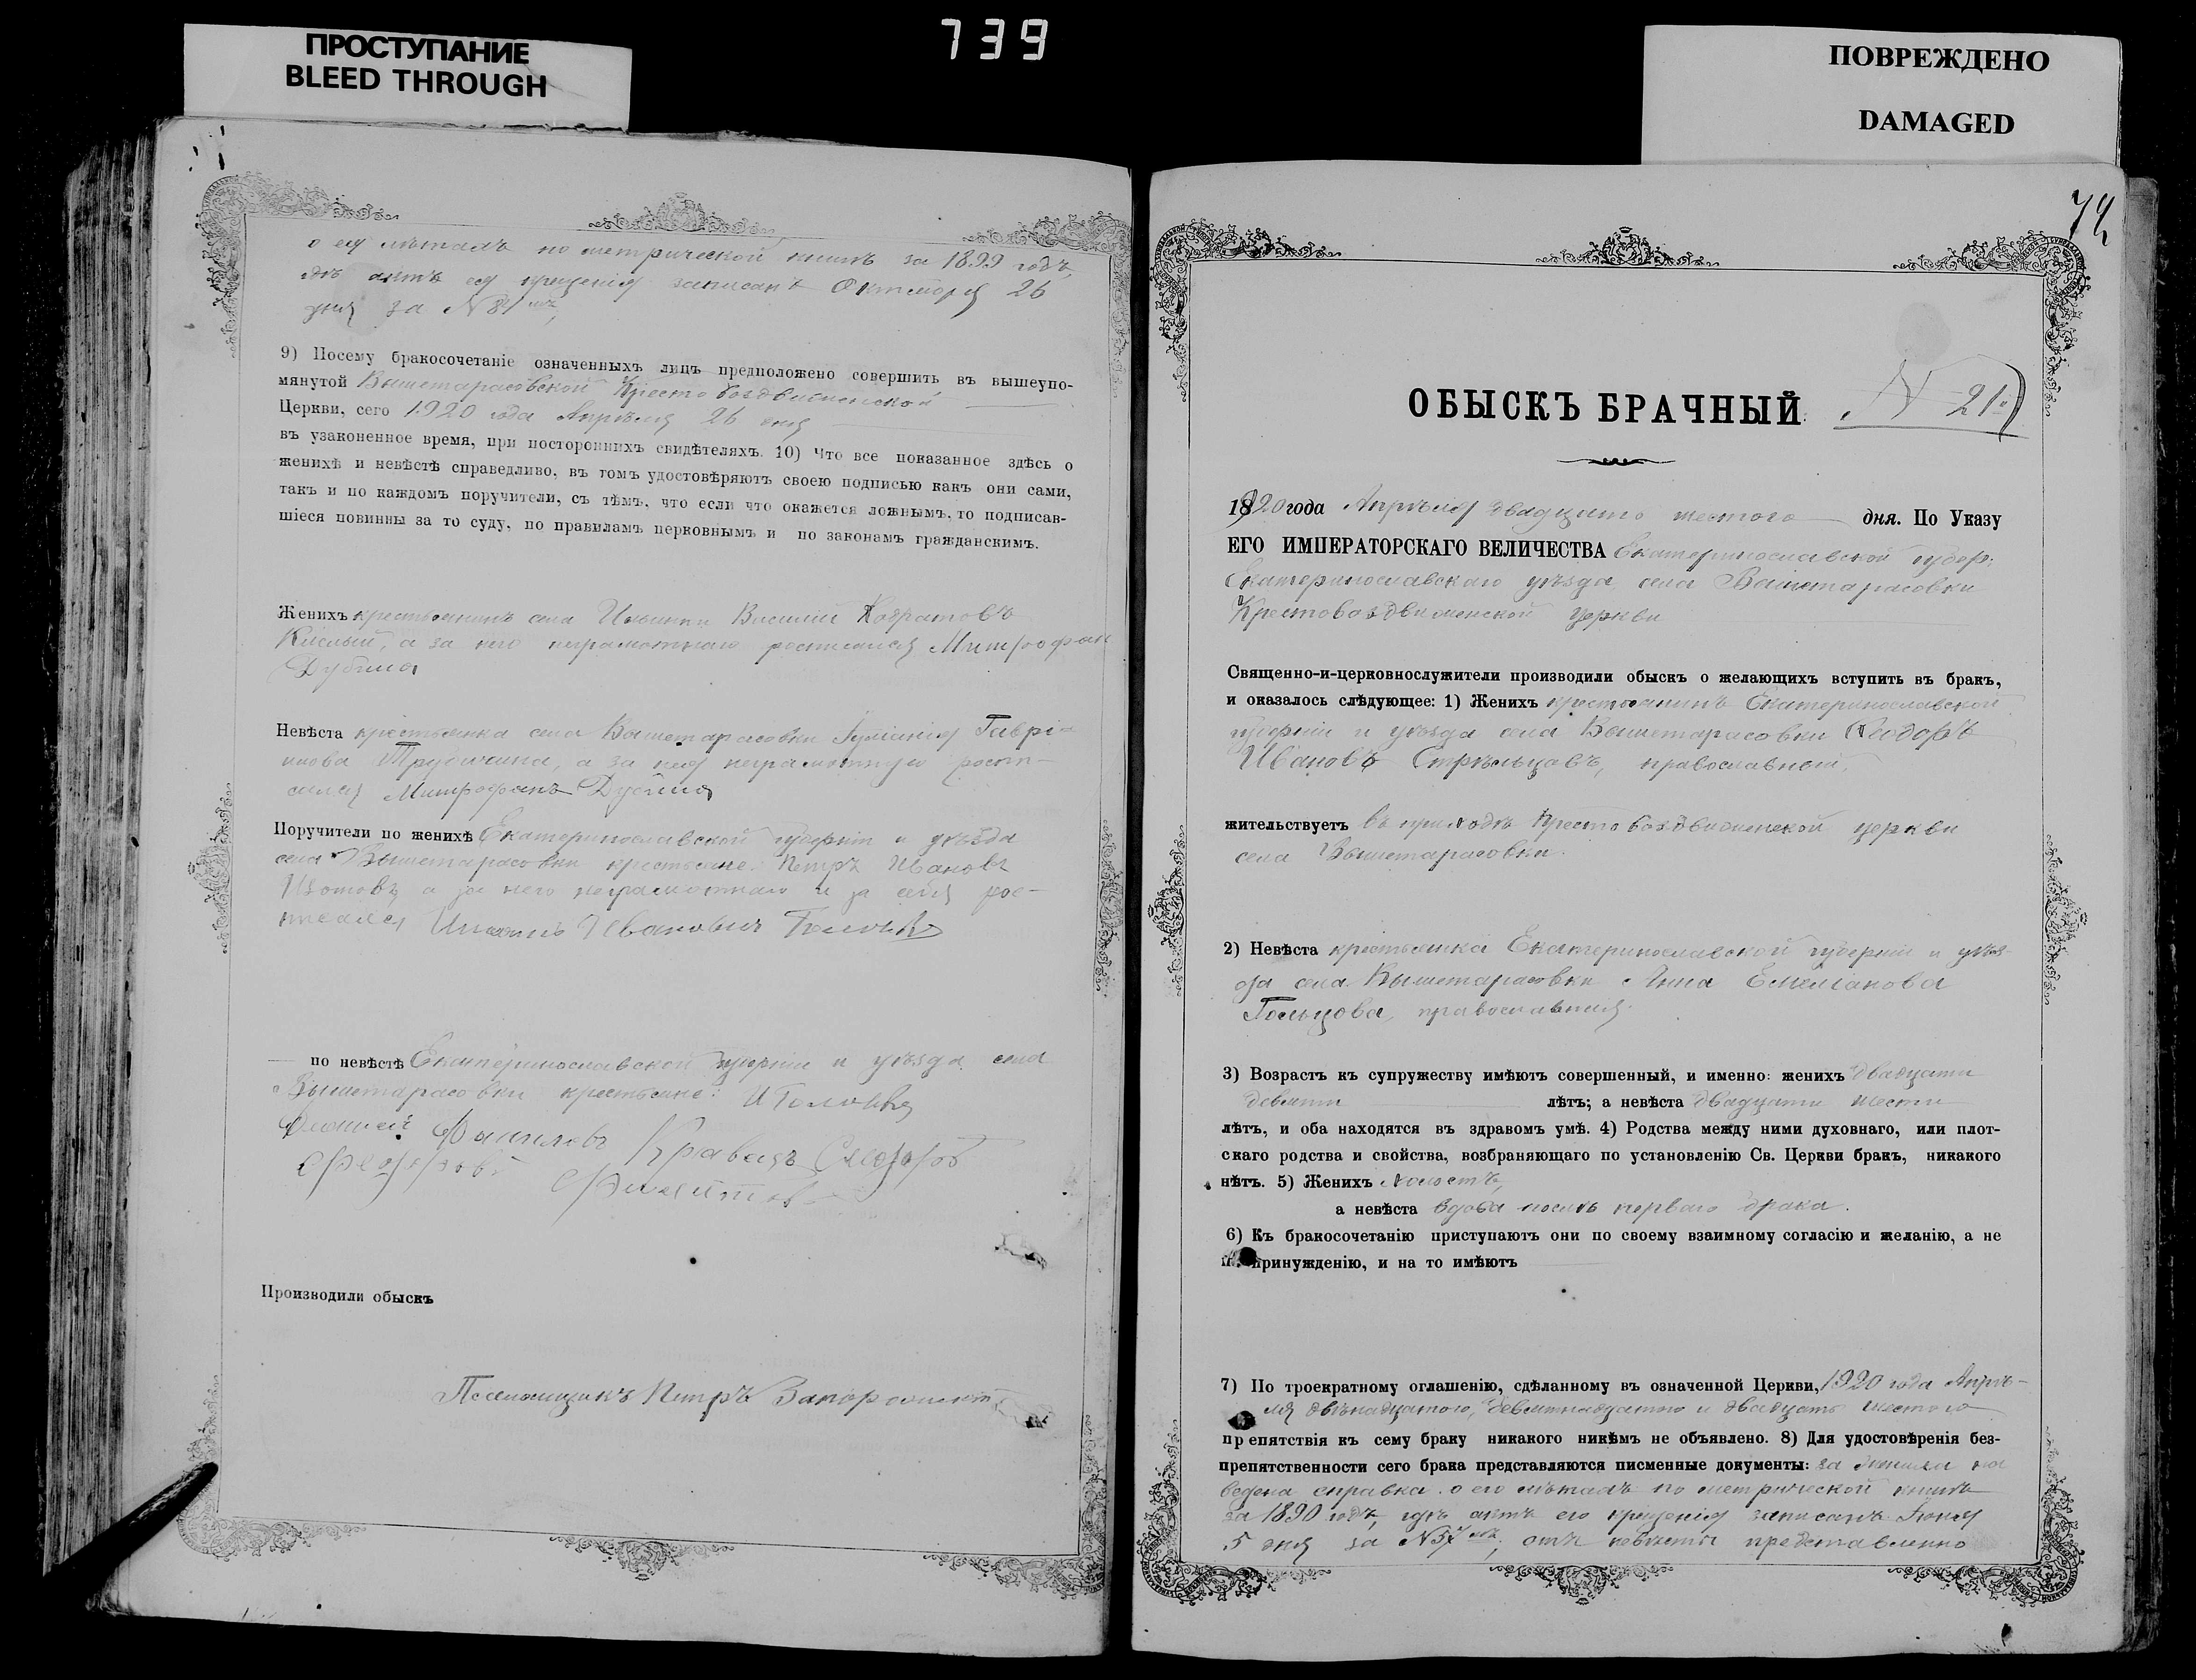 ПРОСТУПАНИЕ
BLEED THROUGH
739
ПОВРЕЖДЕНО
DAMAGED
о ея лѣтахъ по метрической книгѣ за 1899 годъ,
гдѣ актъ ея крещенія записанъ Октября 26
дня за № 81
9) Посему бракосочетаніе означенныхъ лицъ предположено совершить въ вышеупо-
мянутой Вышетарасовской Крестовоздвиженской
Церкви, сего 1920 года Апрѣля 26 дня
въ узаконенное время, при постороннихъ свидѣтеляхъ. 10) Что все показанное здѣсь о
женихѣ и невѣстѣ справедливо, въ томъ удостовѣряютъ своею подписью какъ они сами,
такъ и по каждомъ поручители, съ тѣмъ, что если что окажется ложнымъ, то подписав-
шіеся повинны за то суду, по правиламъ церковнымъ и по законамъ гражданскимъ.
Женихъ крестьянинъ села Василій
Кислый, а за него неграмотнаго росписался Митрофан
Дубина
Невѣста крестьянка села Вышетарасовки Гаврі-
илова а за нея неграмотную роспи-
сался Митрофанъ Дубина
Поручители по женихѣ Екатеринославской губерніи и уѣзда
села Вышетарасовки крестьяне: Петръ Ивановъ
а за него неграмотнаго и за себя рос-
писался Ивановичъ
по невѣстѣ Екатеринославской губерніи и уѣзда села
Вышетарасовки крестьяне:
Кравецъ
Производили обыскъ
Псаломщикъ Петръ
74
ОБЫСКЪ БРАЧНЫЙ. № 21
1920 года Апрѣля двадцать шестого дня. По Указу
ЕГО ИМПЕРАТОРСКАГО ВЕЛИЧЕСТВА Екатеринославской губер.
Екатеринославскаго уѣзда села Вышетарасовки
Крестовоздвиженской церкви
Священно-и-церковнослужители производили обыскъ о желающихъ вступить въ бракъ,
и оказалось слѣдующее: 1) Женихъ крестьянинъ Екатеринославской
губерніи и уѣзда села Вышетарасовки Ѳеодоръ
Ивановъ Стрѣльцовъ, православный,
жительствуетъ въ приходѣ Крестовоздвиженской церкви
села Вышетарасовки.
2) Невѣста крестьянка Екатеринославской губерніи и уѣз-
да села Вышетарасовки Анна Емеліанова
Гольцова, православная.
3) Возрастъ къ супружеству имѣютъ совершенный, и именно: женихъ двадцати
девяти лѣтъ; а невѣста двадцати шести
лѣтъ, и оба находятся въ здравомъ умѣ. 4) Родства между ними духовнаго, или плот-
скаго родства и свойства, возбраняющаго по установленію Св. Церкви бракъ, никакого
нѣтъ. 5) Женихъ холостъ,
а невѣста вдова послѣ перваго брака.
6) Къ бракосочетанію приступаютъ они по своему взаимному согласію и желанію, а не
по принужденію, и на то имѣютъ
7) По троекратному оглашенію, сдѣланному въ означенной Церкви, 1920 года Апрѣ-
ля двѣнадцатого, девятнадцатого и двадцать шестого
препятствія къ сему браку никакого никѣмъ не объявлено. 8) Для удостовѣренія без-
препятственности сего брака представляются писменные документы: за жениха на
ведена справка о его лѣтахъ по метрической книгѣ
за 1890 годъ, гдѣ актъ его крещенія записанъ Іюня
5 дня за № 57, отъ невѣсты представленно